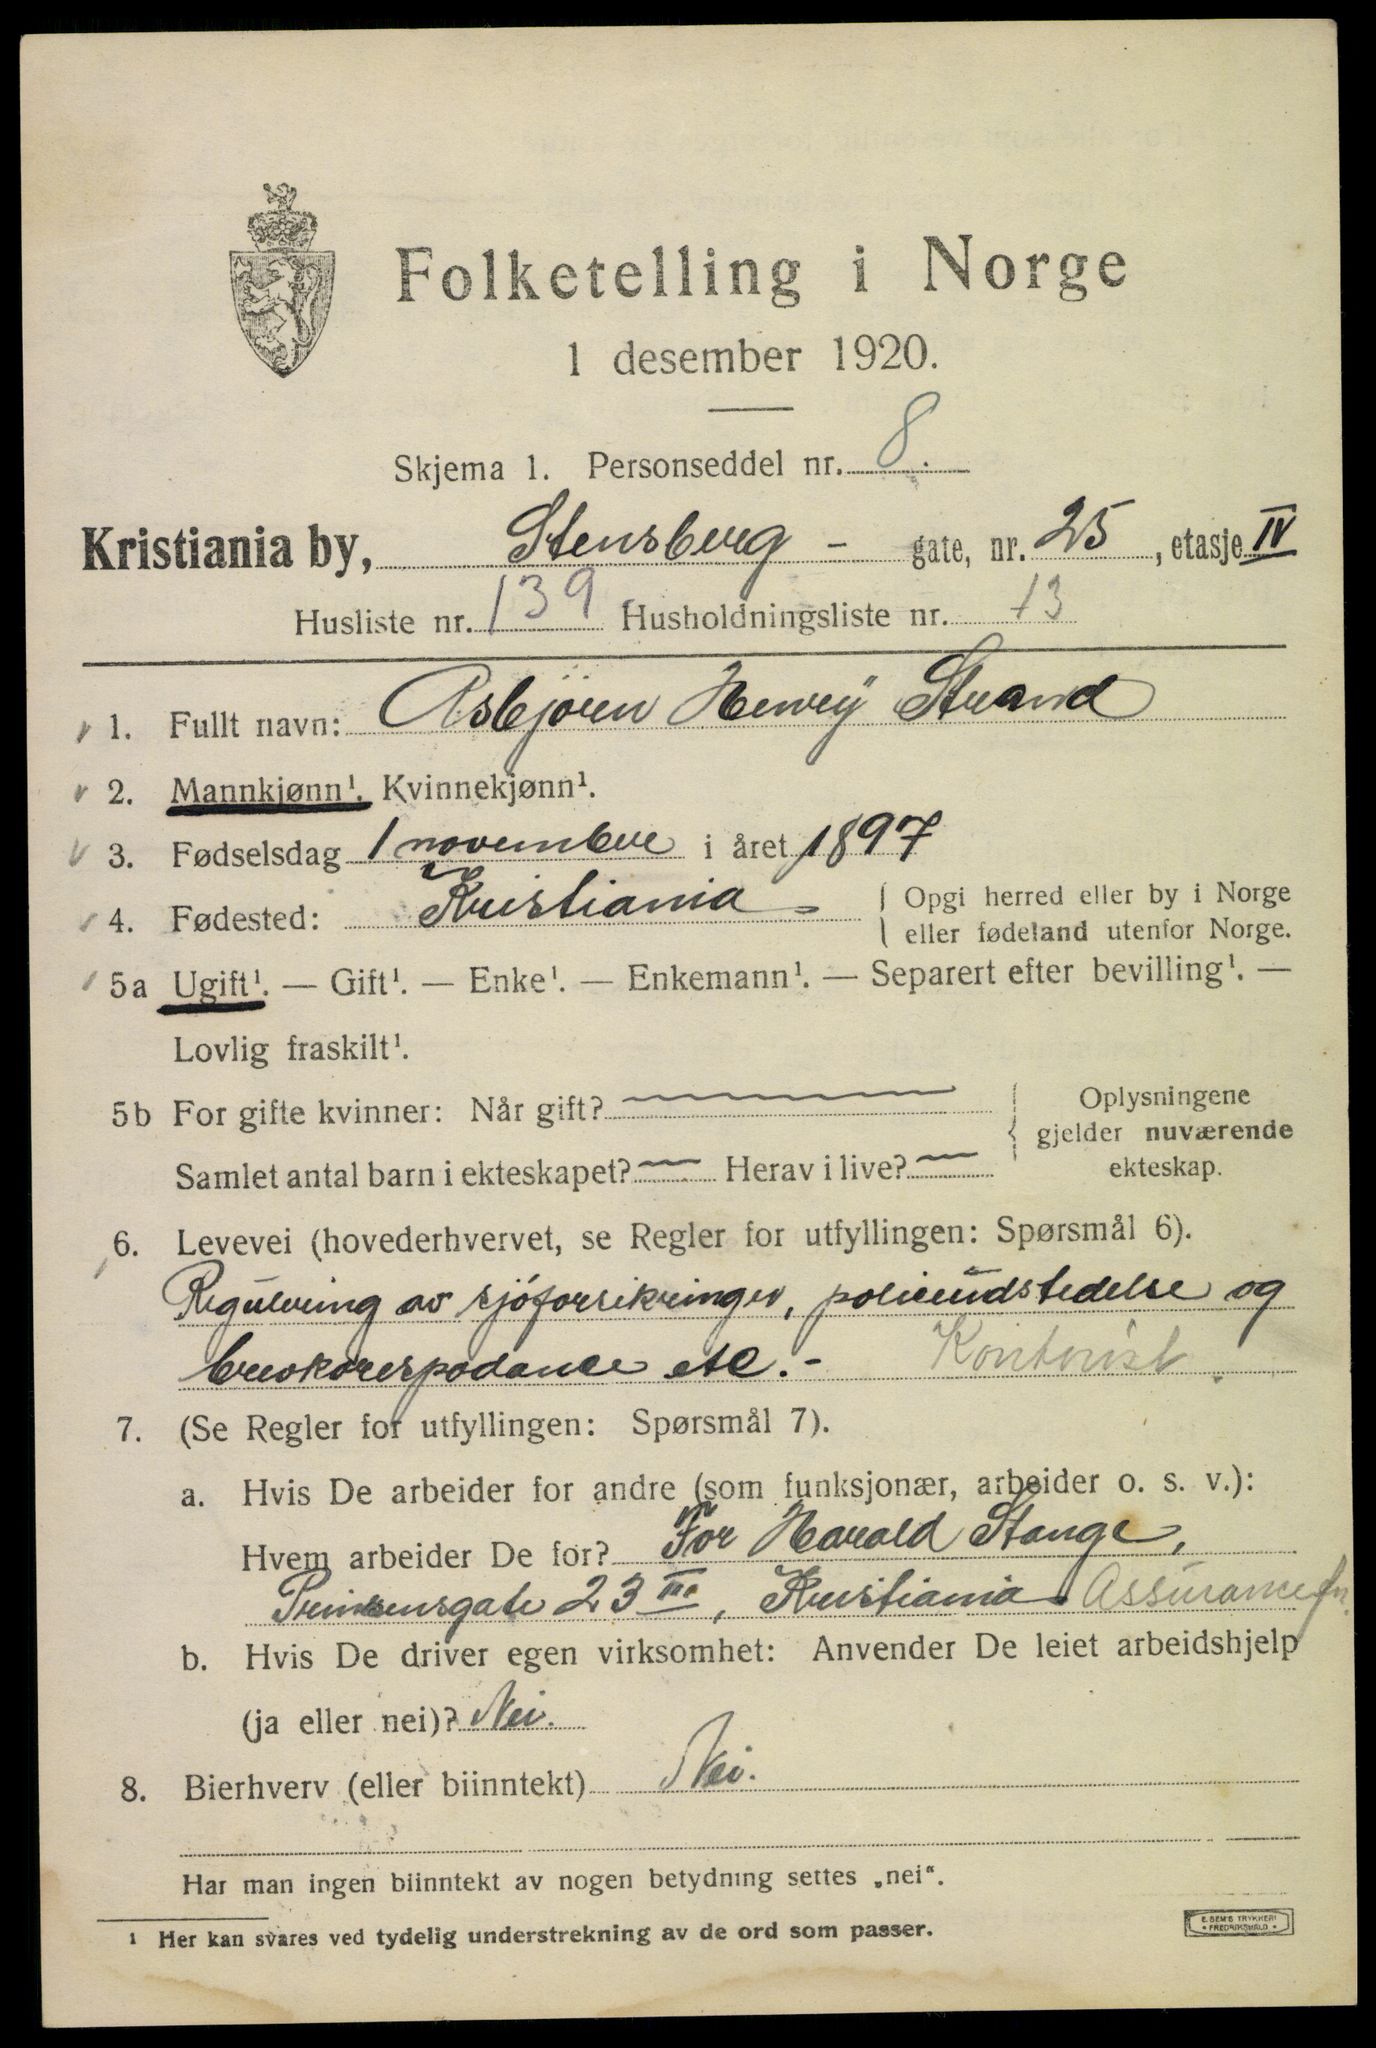 Folketelling i Norge
1 desember 1920.
Skjema 1. Personseddel nr. 8.
Kristiania by, Stensberg - gate, nr. 25, etasje IV
Husliste nr. 139 Husholdningsliste nr. 13
1. Fullt navn: Asbjören Henry Strand
2. Mannkjønn¹. Kvinnekjønn¹.
3. Fødselsdag 1 november i året 1897
4. Fødested: Kristiania - Opgi herred eller by i Norge
eller fødeland utenfor Norge.
5a Ugift¹. — Gift¹. — Enke¹. — Enkemann¹. — Separert efter bevilling¹. —
Lovlig fraskilt¹.
5b For gifte kvinner: Når gift? Oplysningene
gjelder nuværende
Samlet antal barn i ekteskapet? — Herav i live? — ekteskap.
6. Levevei (hovederhvervet, se Regler for utfyllingen: Spørsmål 6).
Regulering av sjöforsikringer, policeudstedelse og
brevkorespodance etc. - Kontorist
7. (Se Regler for utfyllingen: Spørsmål 7).
a. Hvis De arbeider for andre (som funksjonær, arbeider o. s. v.):
Hvem arbeider De for? For Harald Stange,
Prinsensgate 23 III, Kristiania Assurancefn.
b. Hvis De driver egen virksomhet: Anvender De leiet arbeidshjelp
(ja eller nei)? Nei.
8. Bierhverv (eller biinntekt) Nei.
Har man ingen biinntekt av nogen betydning settes „nei“.
¹ Her kan svares ved tydelig understrekning av de ord som passer.
E. SEM'S TRYKKERI
FREDRIKSHALD